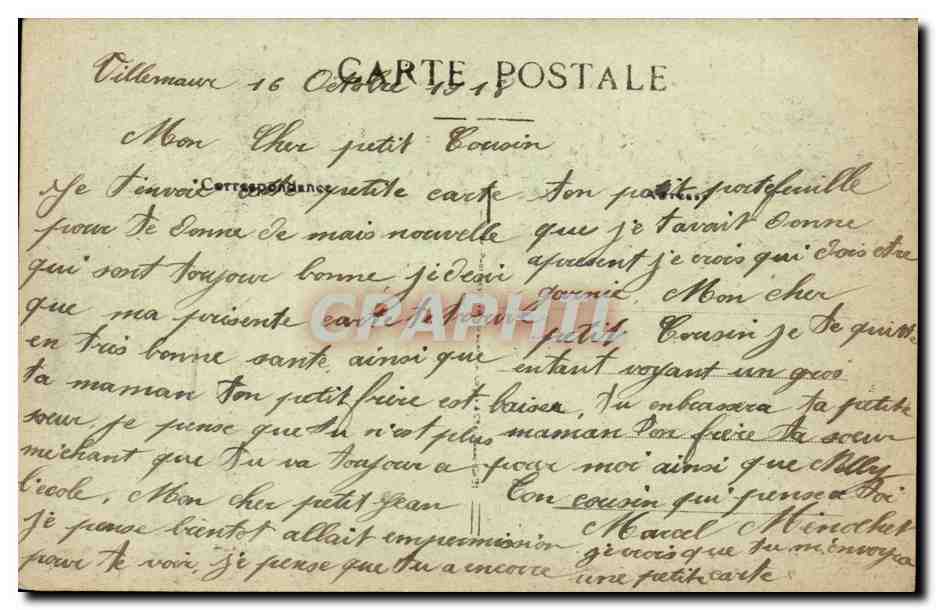 CARTE POSTALE
Villemaur 16 Octobre 1918
Mon Cher petit Cousin
Correspondance
Je t'envoie petite carte
pour te donne de mais nouvelle
qui sont toujour bonne, je desir
que ma prisente carte te trouve
en tris bonne santé, ainsi que
ta maman ton petit frère est
sœur, je pense que tu n'est plus
méchant que tu va toujour a
l'ecole, Mon cher petit Jean
je pense bientot allait empermission
pour te voir, je pense que tu a encore
ton petit portefeuille
que je t'avait donne
apresent je crois qui dois etre
garnie. Mon cher
petit Cousin je te quitte
entant voyant un gros
baiser, tu enbrassera ta petite
maman ton frère ta sœur
pour moi ainsi que Nelly
Ton cousin qui pense a toi
Marcel Minochet
je crois que tu m'envoyra
une petite carte
CPAPHIL